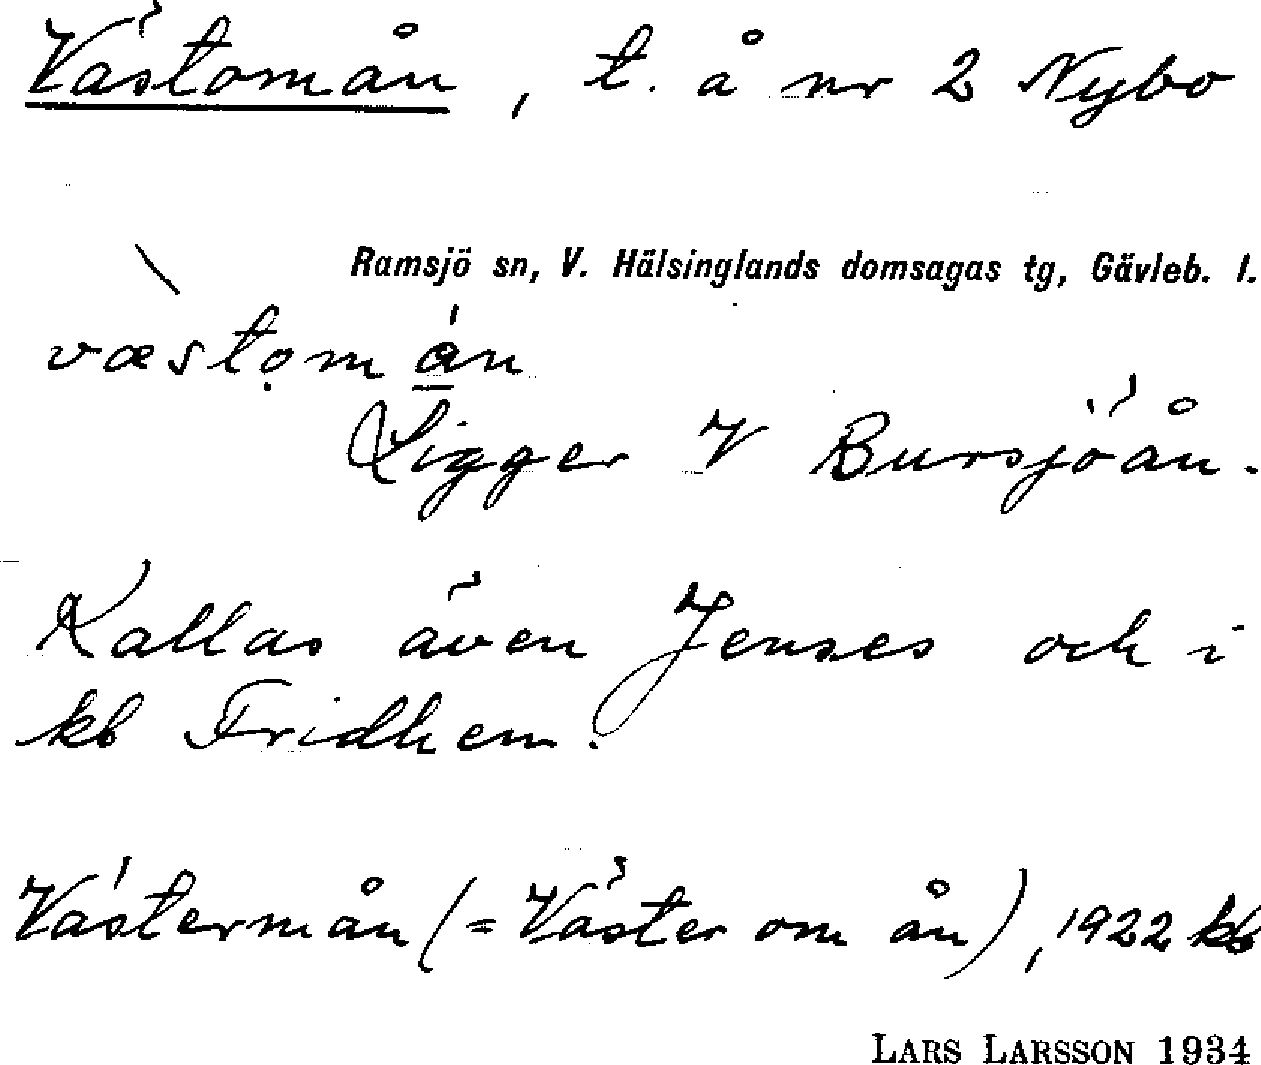 Västomån, t. å nr 2 Nybo
Ramsjö sn, V. Hälsinglands domsagas tg, Gävleb. l.
væ̀stǫmán
Ligger V Bursjöån.
Kallas även Jenses och i
kb Fridhem.
Västermån (= Väster om ån), 1922 kb
LARS LARSSON 1934